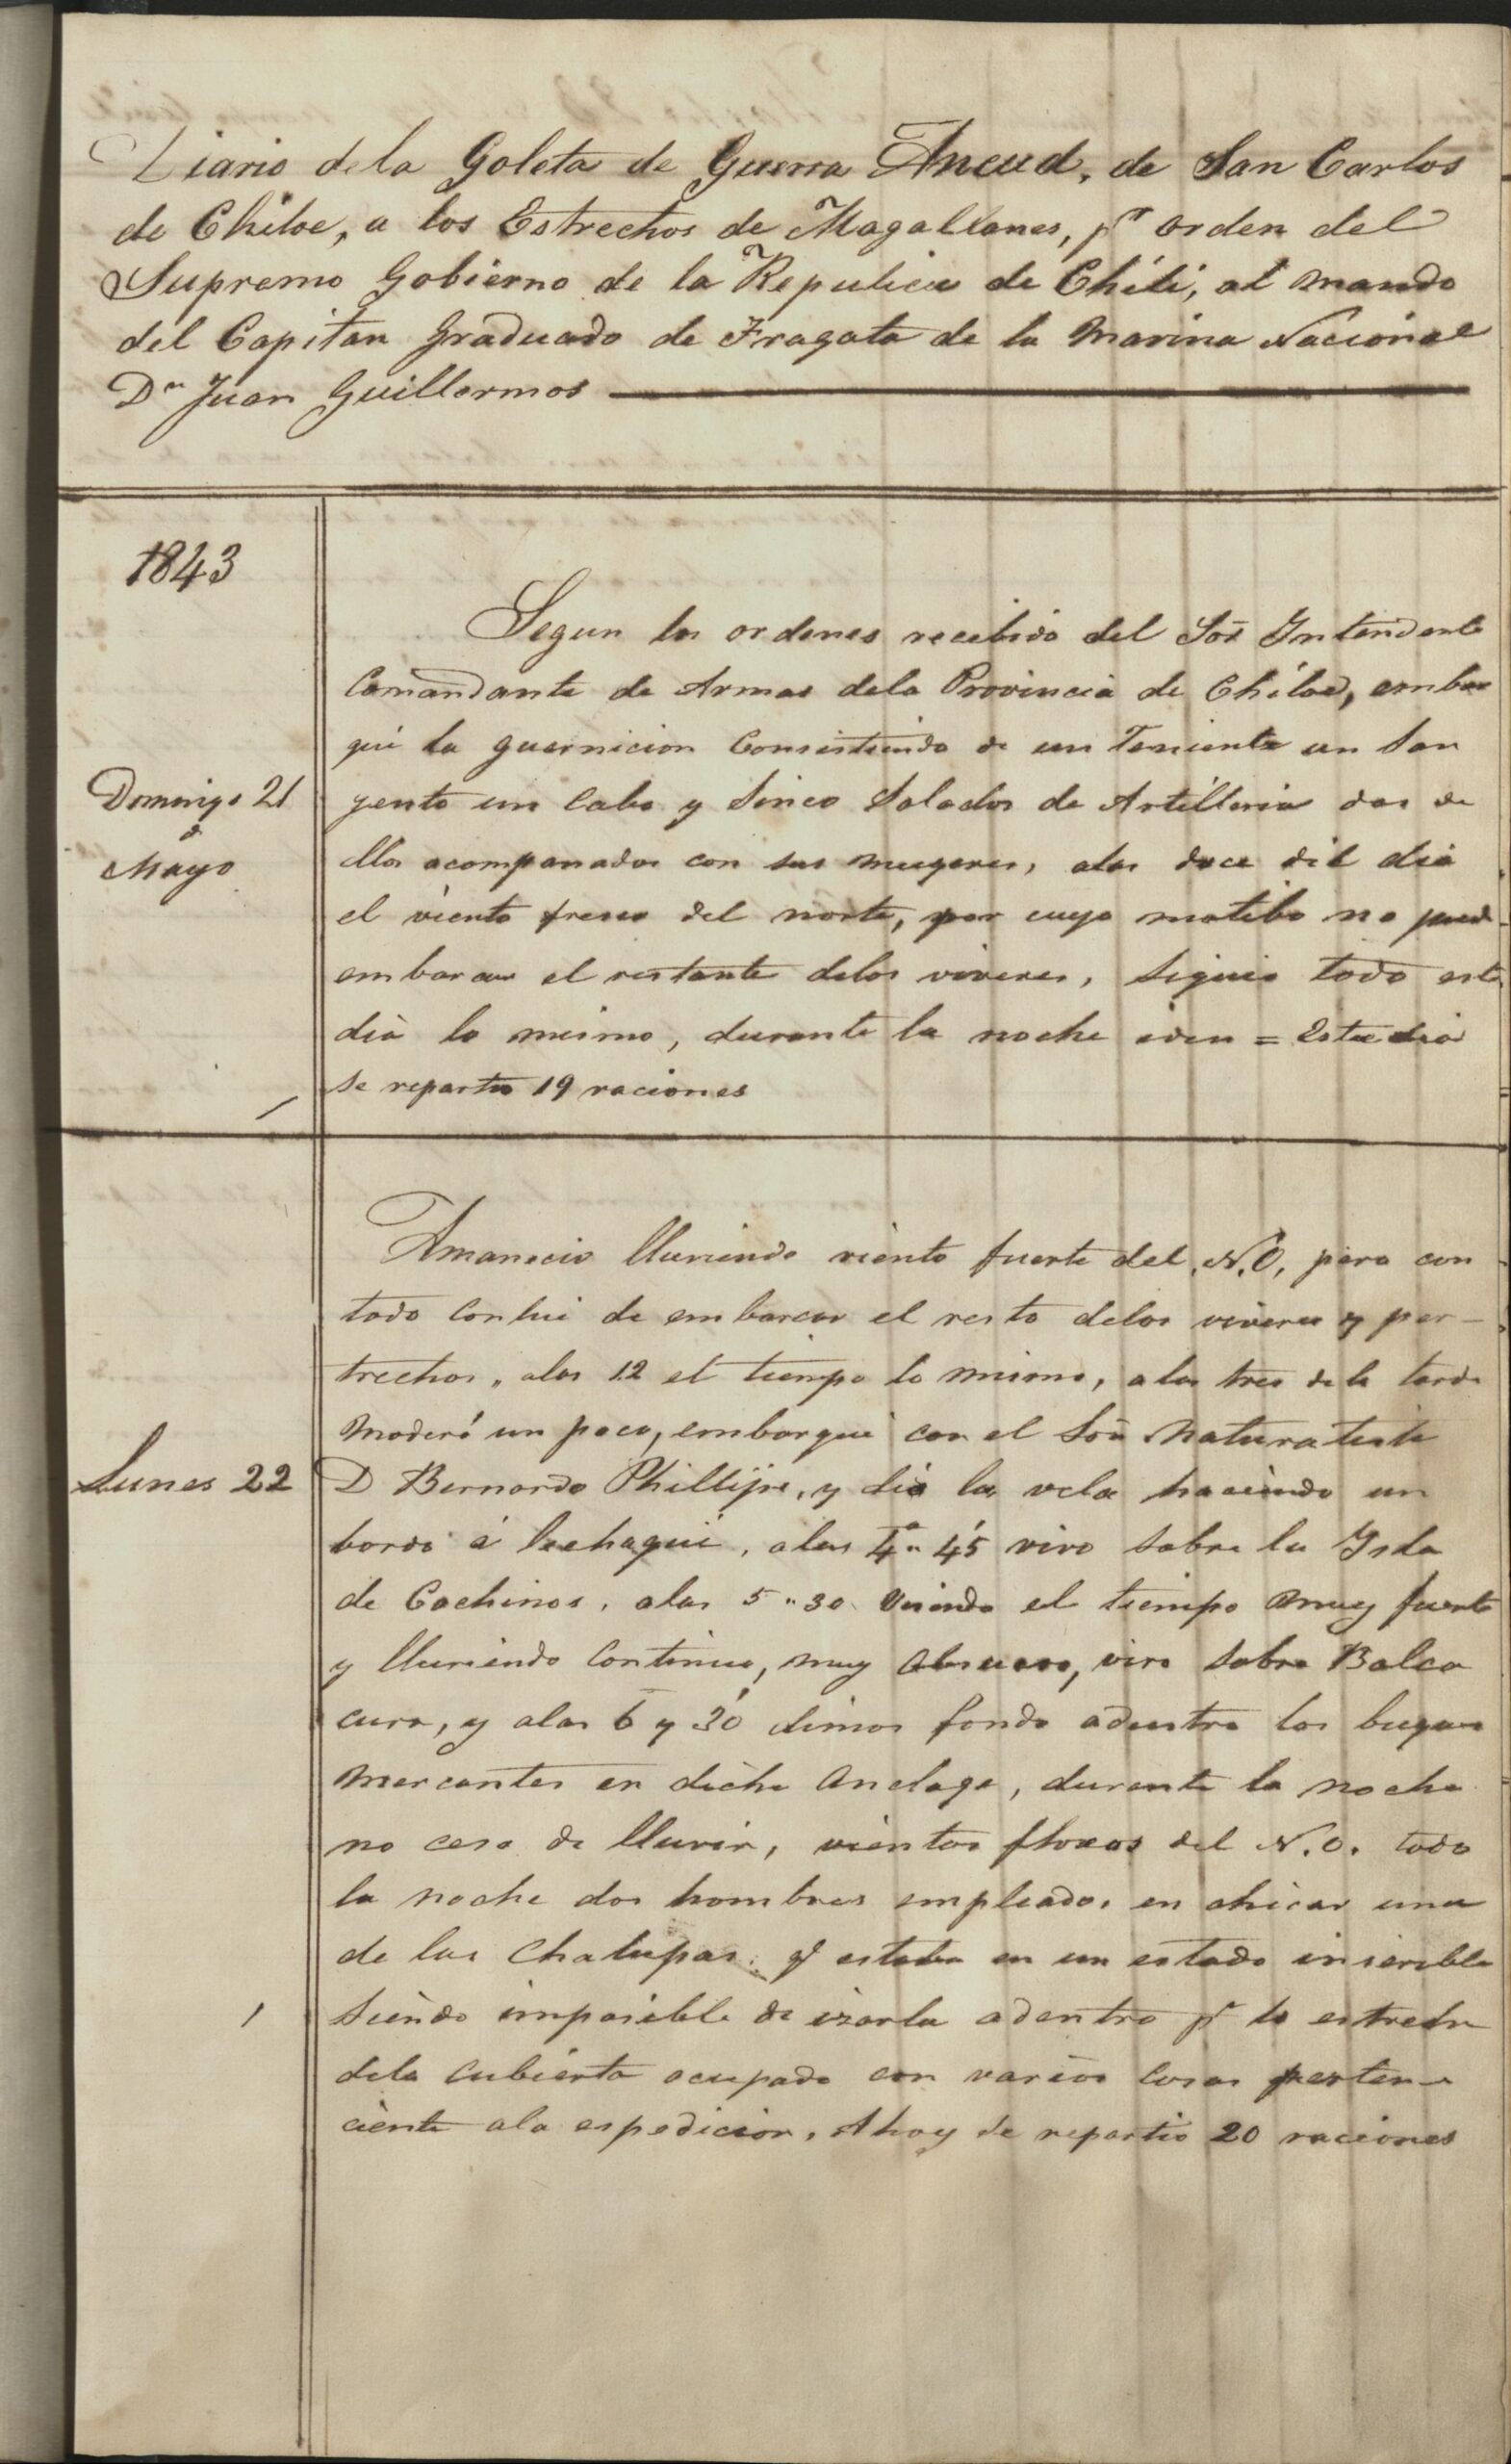 Diario dela Goleta de Guerra Ancud, de San Carlos
de Chiloe, a los Estrechos de Magallanes, pr orden del
Supremo Gobierno de la Republica de Chili, al mando
del Capitan graduado de Fragata de la Marina Nacional
Dn Juan Guillermos
1843
Segun las ordenes recebido del Sor Intendente
Comandante de Armas dela Provincia de Chiloe, embar
qué la guarnicion Consistiendo de un Teniente un Sar
Domingo 21
gento un Cabo y Sinco Soldados de Artilleria dos de
d
Mayo
llos acompanados con sus mugeres, alas doce del dia
el viento fresco del norte, por cuyo motibo no pude
embarcar el restante delos viveres, siguio todo este
dia lo mismo, durante la noche iden = Este dia
se repartio 19 raciones
Amanecio lluviendo viento fuerte del N.O, pero con
todo conlui de embarcar el resto delos viveres y per-
trechos, alas 12 el tiempo lo mismo, a las tres de la tarde
moderó un poco, embarqué con el Sor Naturaliste
Lunes 22
D Bernardo Phillipe, y dia la vela haciendo un
bordo á Lechagui, alas 4" 45 viro sobre la Ysla
de Cochinos, alas 5"30 Viendo el tiempo muy fuerte
y lluviendo Continuo, muy obscuro, viro sobre Balca
cura, y alas 6 y 30 dimos fondo adentro los buques
mercantes en dicho Anclage, durante la noche
no ceso de lluvir, vientos floxos del N.O. todo
la noche dos hombres empleados en achicar una
de las Chalupas q estaba en un estado inserible
Siendo imposible de izarla adentro pr lo estrecho
dela Cubierta ocupado con varios cosas pertene
ciente ala espedicion, Ahoy se repartio 20 raciones